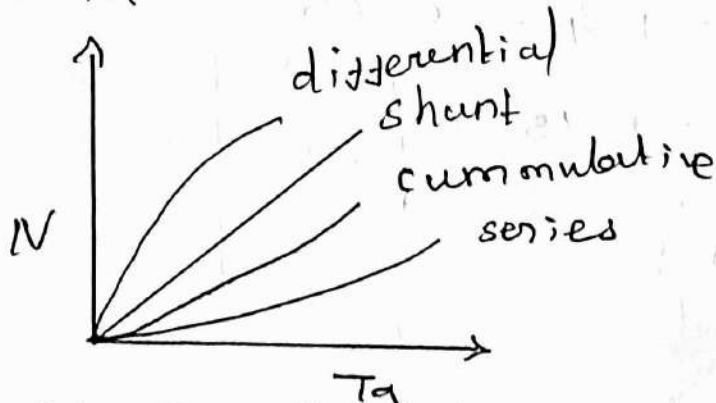 differential
shunt
cummulative
series
N
Ta